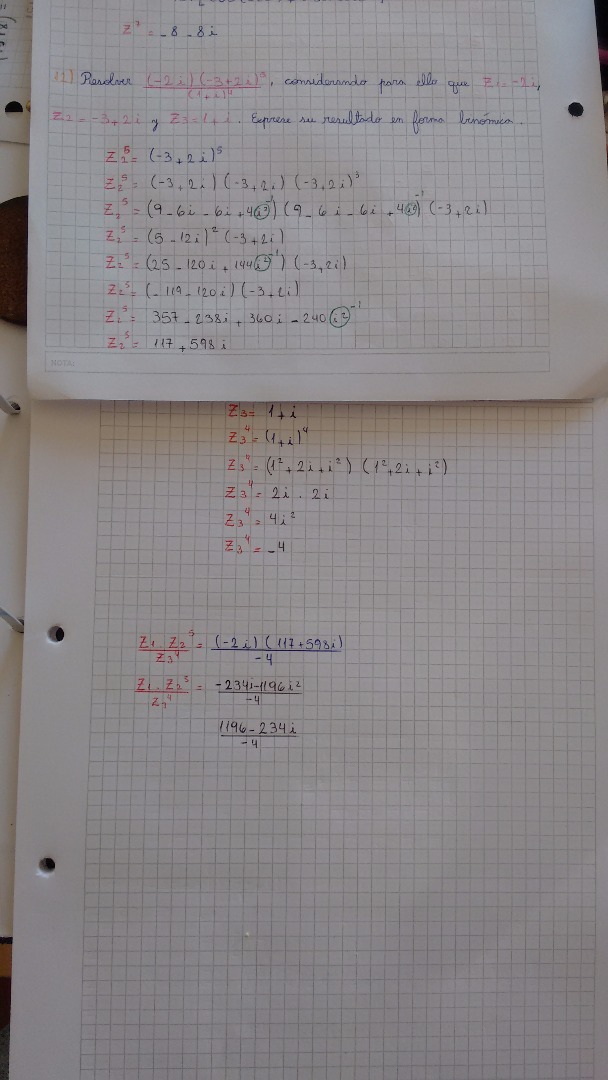 z⁷ = -8 - 8i
11) Resolver (-2i)(-3+2i)⁵/(1+i)⁴, considerando para ello que z₁ = -2i,
z₂ = -3+2i y z₃ = 1+i. Exprese su resultado en forma binómica.
z₂⁵ = (-3+2i)⁵
z₂⁵ = (-3+2i)(-3+2i)(-3+2i)³
z₂⁵ = (9-6i-6i+4i²⁻¹)(9-6i-6i+4i²⁻¹)(-3+2i)
z₂⁵ = (5-12i)²(-3+2i)
z₂⁵ = (25-120i+144i²⁻¹)(-3+2i)
z₂⁵ = (-119-120i)(-3+2i)
z₂⁵ = 357-238i+360i-240i²⁻¹
z₂⁵ = 117+598i
NOTA:
z₃ = 1+i
z₃⁴ = (1+i)⁴
z₃⁴ = (1²+2i+i²)(1²+2i+i²)
z₃⁴ = 2i . 2i
z₃⁴ = 4i²
z₃⁴ = -4
z₁ . z₂⁵/z₃⁴ = (-2i)(117+598i)/-4
z₁ . z₂⁵/z₃⁴ = -234i-1196i²/-4
1196-234i/-4